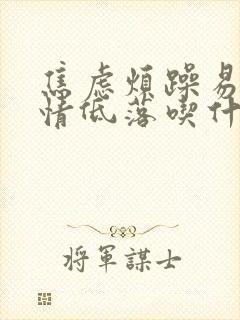 焦虑煩躁易
情低落喫什
将軍謀士